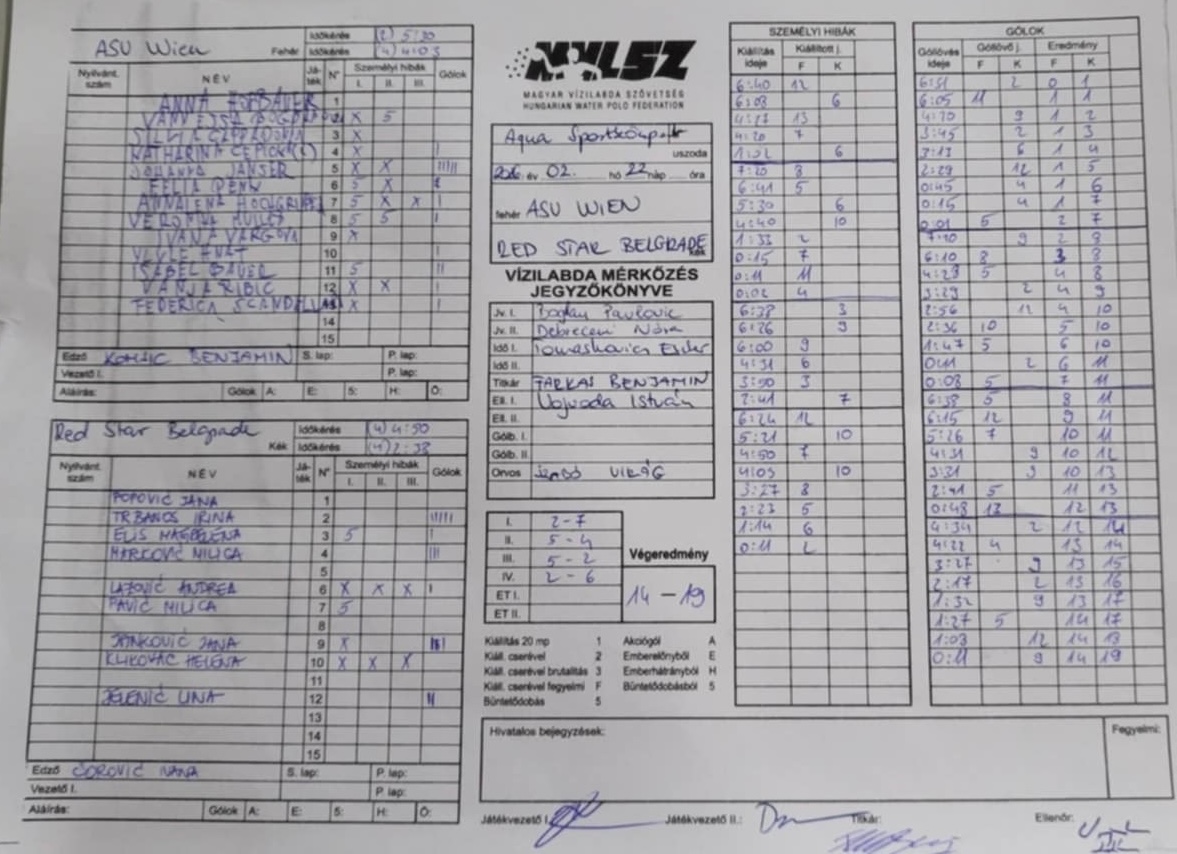 ASU Wien
Fehér
Időkérés (2) 5:30
Időkérés (4) 4:03
Nyilvánt. szám NÉV Já-ték N° Személyi hibák I. II. III. Gólok
ANNA 1
2 X 5
SILVIA 3 X
KATHARINA 4 X I
JOHANNA JANSER 5 X X IIIII
FELIA 6 5 X
ANNALENA 7 5 X X I
VERONIKA 8 5 5 I
IVANA VARGOVA 9 X
10 I
ISABEL BAUER 11 5 II
VANJA RIBIC 12 X X I
FEDERICA 13 X I
14
15
Edző KOMSIC BENJAMIN S. lap: P. lap:
Vezető I. P. lap:
Aláírás: Gólok A: E: 5: H: Ö:
Red Star Belgrade
Kék
Időkérés (4) 4:50
Időkérés (4) 2:38
Nyilvánt. szám NÉV Já-ték N° Személyi hibák I. II. III. Gólok
POPOVIĆ JANA 1
TRBANOS IRINA 2 IIIII
ELIS MAGDELENA 3 5 I
MARKOVIĆ MILICA 4 III
5
LAZOVIĆ ANDREA 6 X X X I
PAVIĆ MILICA 7 5
8
JANKOVIĆ JANA 9 X
KLIKOVAC HELENA 10 X X X
11
JELENIĆ LINA 12 II
13
14
15
Edző ĆOROVIĆ NANA S. lap: P. lap:
Vezető I. P. lap:
Aláírás: Gólok A: E: 5: H: Ö:
MVLSZ
MAGYAR VÍZILABDA SZÖVETSÉG
HUNGARIAN WATER POLO FEDERATION
Aqua
uszoda
év 02. hó 22 nap óra
fehér ASU WIEN
RED STAR BELGRADE
kék
VÍZILABDA MÉRKŐZÉS
JEGYZŐKÖNYVE
Jv. I. Boglan Pavlovic
Jv. II. Debreceni Nóra
Idő I. Tomaskovics Eszter
Idő II.
Titkár FARKAS BENJAMIN
Ell. I. Vojvoda István
Ell. II.
Gólb. I.
Gólb. II.
Orvos VIRÁG
I. 2-7
II. 5-4
III. 5-2
IV. 2-6
ET I.
ET II.
Végeredmény
14-19
Kiállítás 20 mp 1 Akciógól A
Kiáll. cserével 2 Emberelőnyből E
Kiáll. cserével brutalitás 3 Emberhátrányból H
Kiáll. cserével fegyelmi F Büntetődobásból 5
Büntetődobás 5
SZEMÉLYI HIBÁK
Kiállítás ideje Kiállított j. F K
6:40 12
6:08 6
4:17 13
4:20 7
1:02 6
7:20 8
6:41 5
5:30 6
4:40 10
1:33 2
0:15 7
0:11 11
0:02 4
6:38 3
6:26 9
6:00 9
4:31 6
3:50 3
2:41 7
6:24 12
5:21 10
4:50 7
4:03 10
3:27 8
2:23 5
1:14 6
0:11 2
GÓLOK
Góllövés ideje Góllövő j. F K Eredmény F K
6:51 2 0 1
6:05 11 1 1
4:10 9 1 2
3:45 2 1 3
3:13 6 1 4
2:29 12 1 5
0:45 4 1 6
0:15 4 1 7
0:01 5 2 7
7:10 9 2 8
6:10 8 3 8
4:28 5 4 8
3:29 2 4 9
2:56 12 4 10
2:36 10 5 10
1:47 5 6 10
0:41 2 6 11
0:08 5 7 11
6:38 5 8 11
6:15 12 9 11
5:26 7 10 11
4:31 9 10 12
3:31 9 10 13
2:41 5 11 13
0:48 13 12 13
4:34 2 12 14
4:22 4 13 14
3:27 9 13 15
2:17 2 13 16
1:32 9 13 17
1:27 5 14 17
1:03 12 14 18
0:11 9 14 19
Hivatalos bejegyzések: Fegyelmi:
Játékvezető I.: Játékvezető II.: Titkár: Ellenőr: